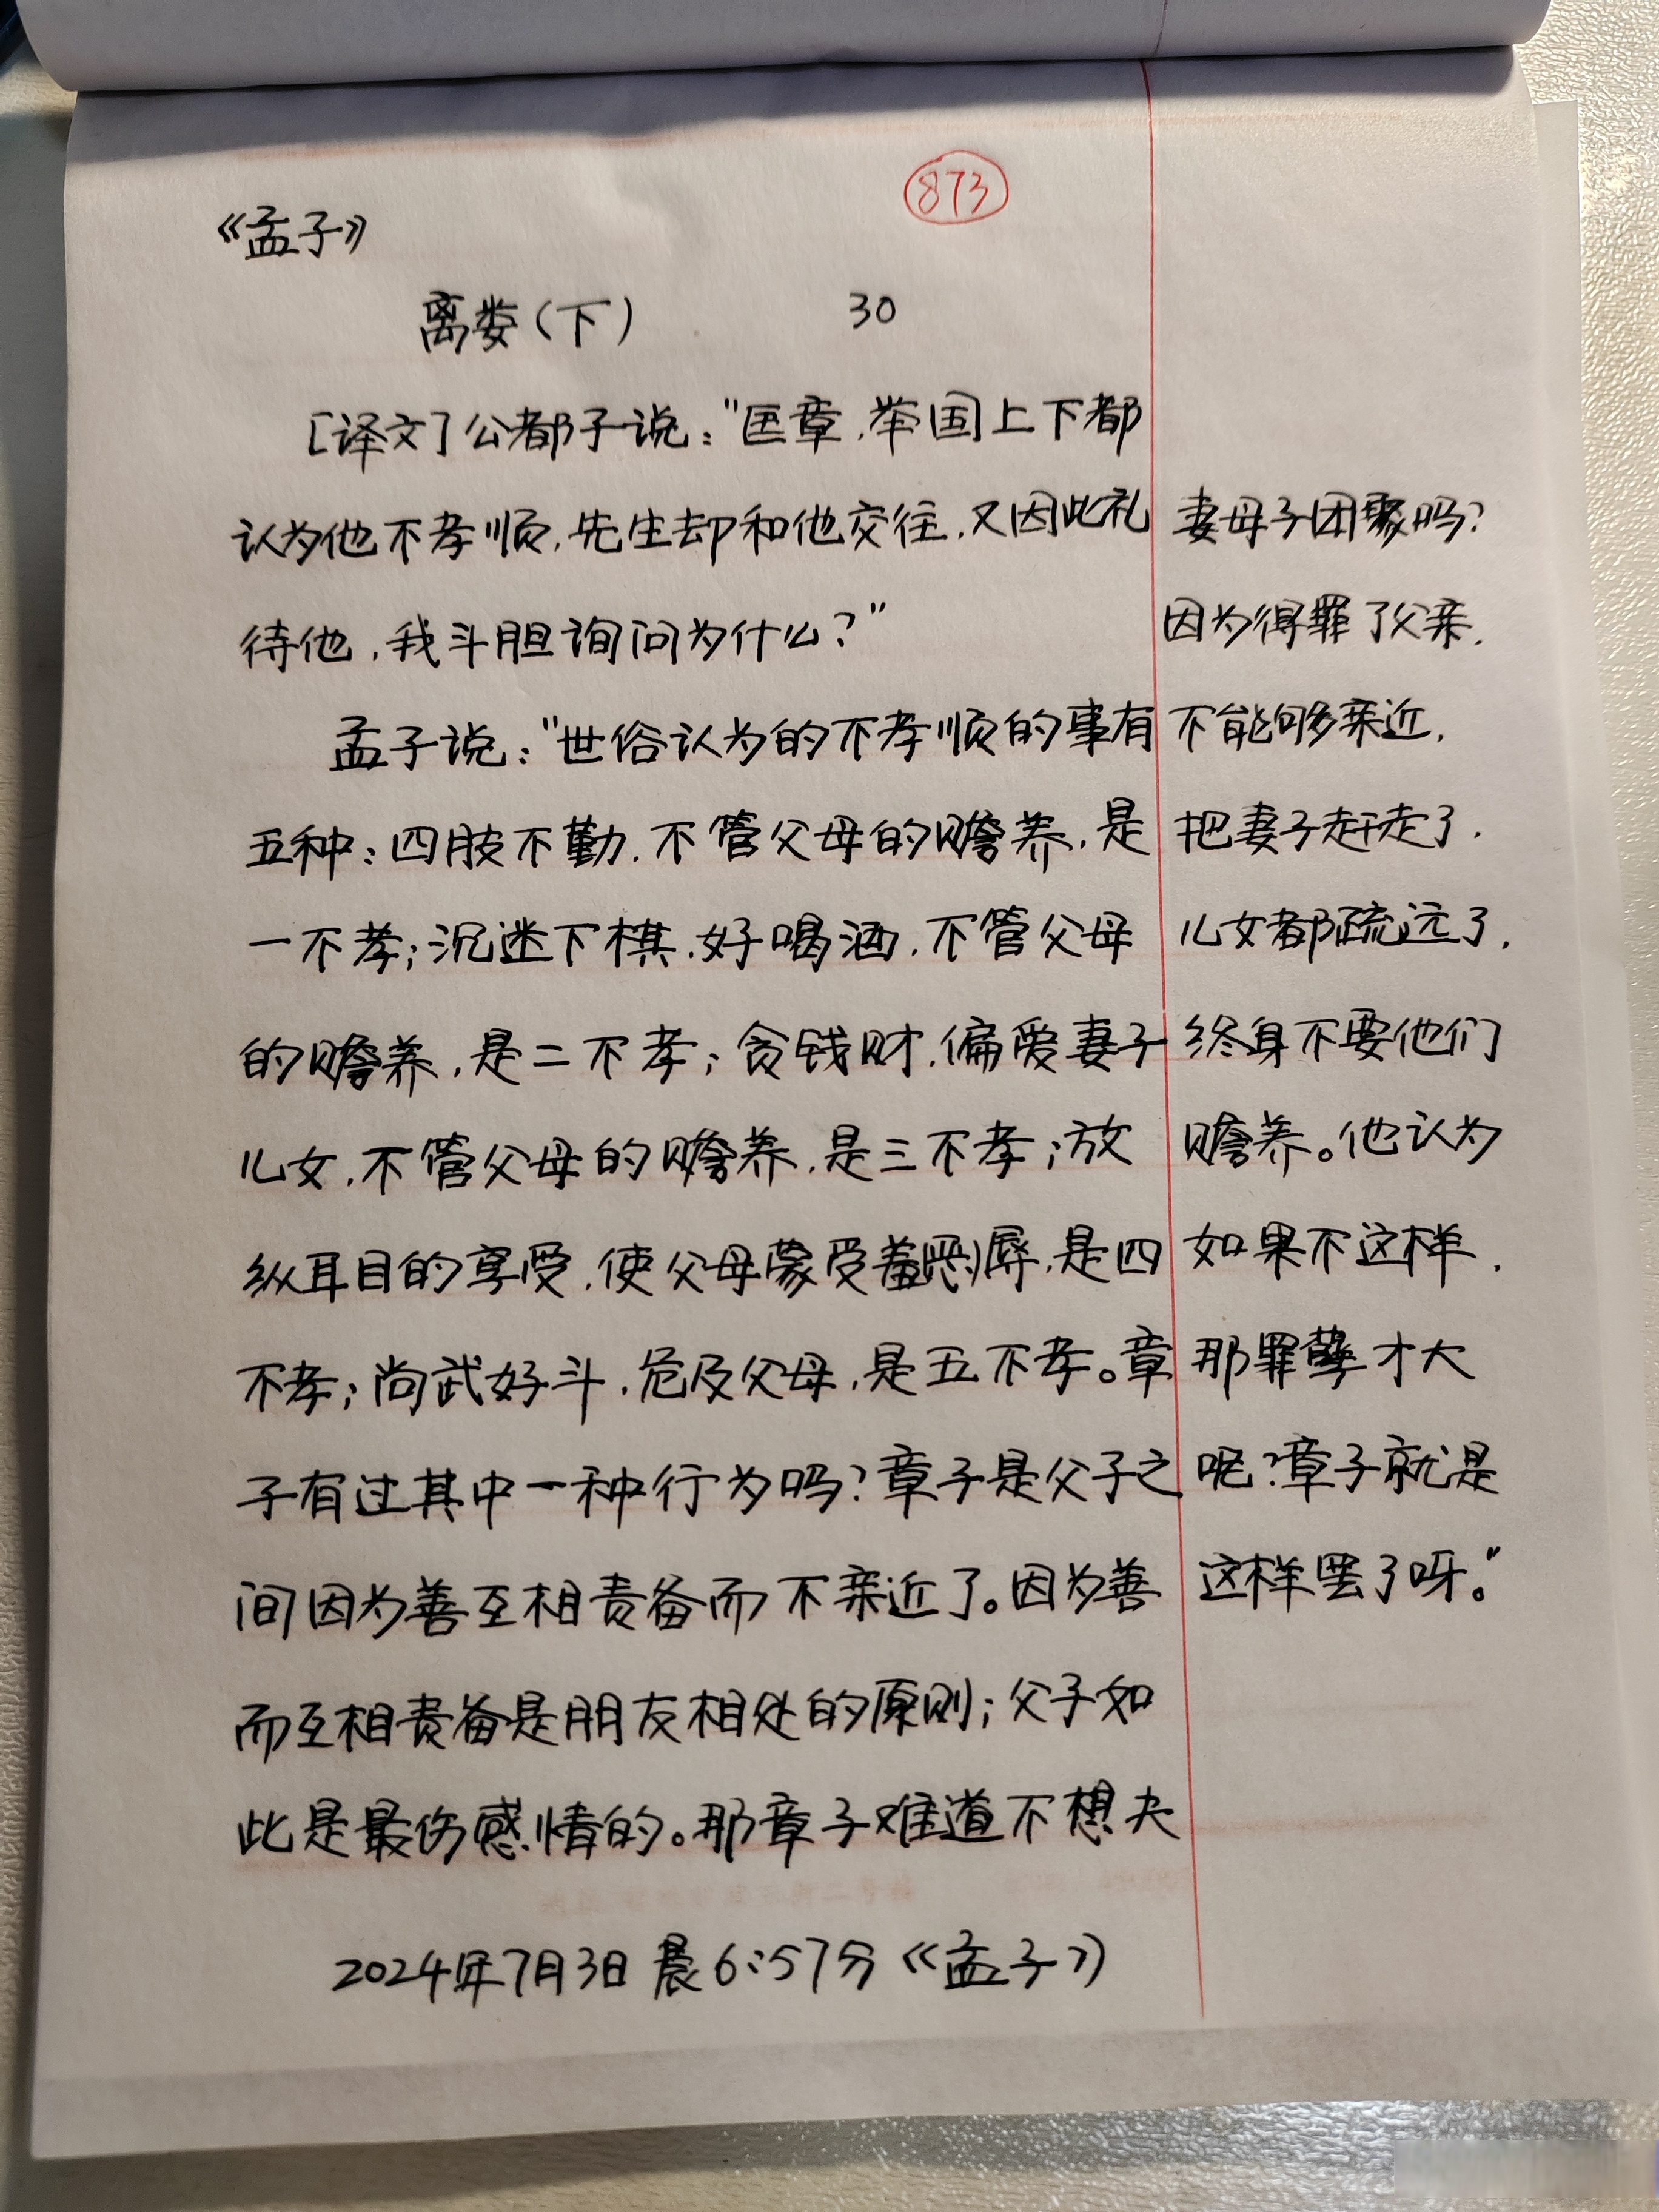 873
《孟子》
离娄(下) 30
[译文]公都子说:"匡章,举国上下都
认为他不孝顺,先生却和他交往,又因此礼
待他,我斗胆询问为什么?"
孟子说:"世俗认为的不孝顺的事有
五种:四肢不勤,不管父母的赡养,是
一不孝;沉迷下棋,好喝酒,不管父母
的赡养,是二不孝;贪钱财,偏爱妻子
儿女,不管父母的赡养,是三不孝;放
纵耳目的享受,使父母蒙受羞辱,是四
不孝;尚武好斗,危及父母,是五不孝。章
子有过其中一种行为吗?章子是父子之
间因为善互相责备而不亲近了。因为善
而互相责备是朋友相处的原则;父子如
此是最伤感情的。那章子难道不想夫
妻母子团聚吗?
因为得罪了父亲,
不能够亲近,
把妻子赶走了,
儿女都疏远了,
终身不要他们
赡养。他认为
如果不这样,
那罪孽才大
呢?章子就是
这样罢了呀。"
2024年7月3日晨6:57分《孟子》